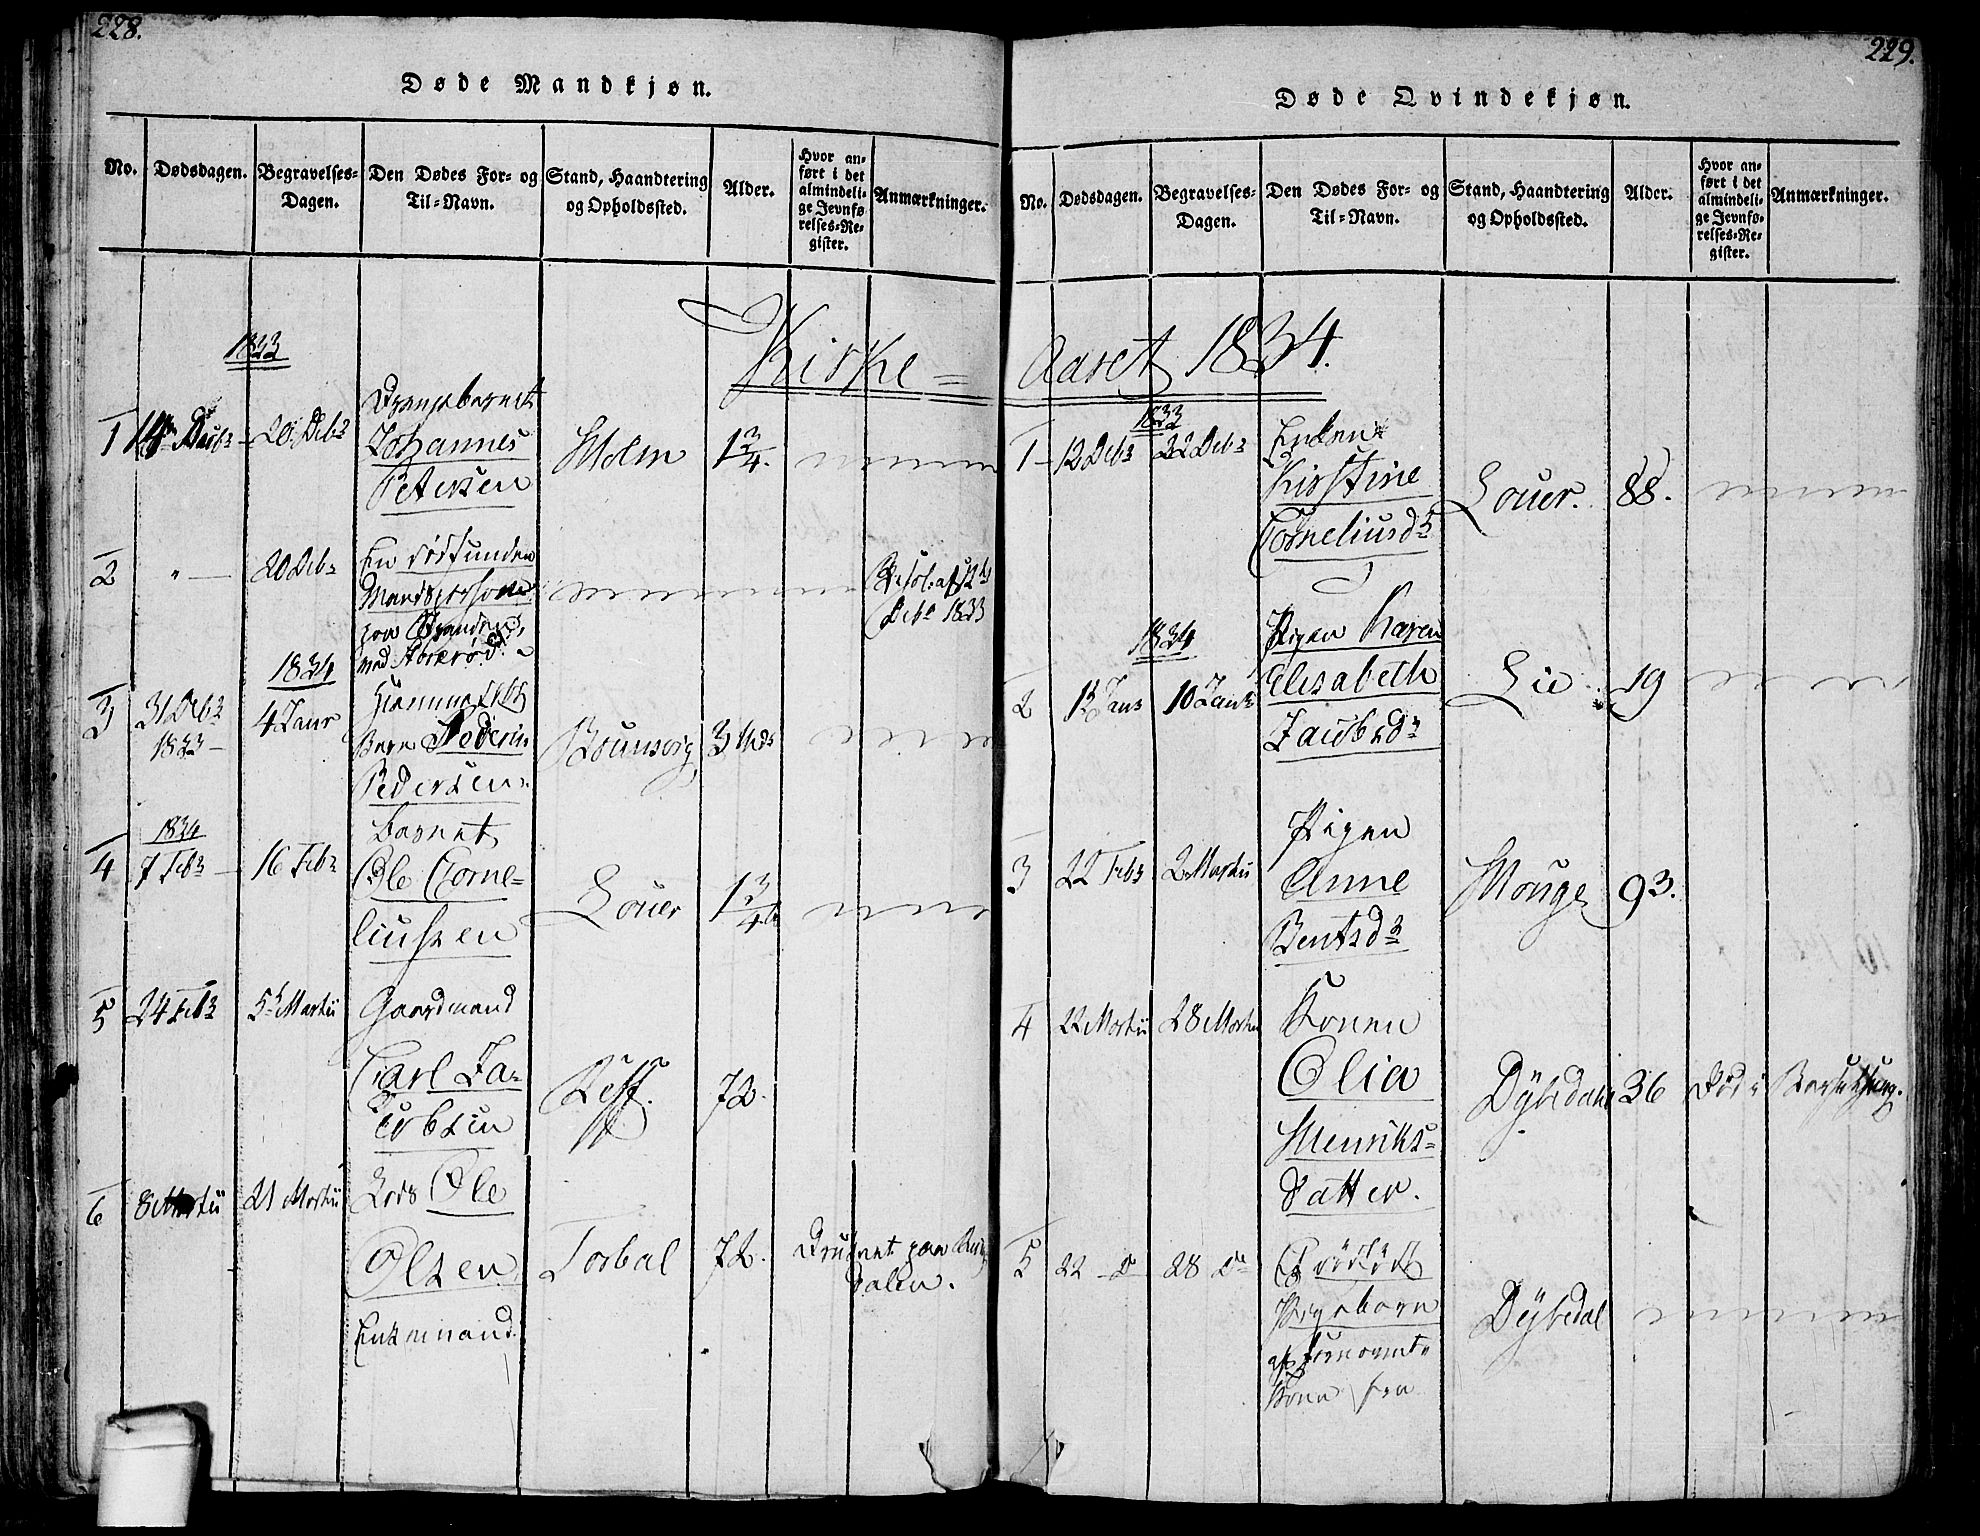 228.
Døde Mandkjøn.
No.
Dødsdagen.
Begravelses-
Dagen.
Den Dødes For- og
Til-Navn.
Stand, Haandtering
og Opholdssted.
Alder.
Hvor an-
ført i det
almindeli-
ge Jevnfø-
relses-Re-
gister.
Anmærkninger.
Kirke-
1833
1
20 Decbr
Drengebarnet
Johannes
Petersen
Holm
1 3/4.
2
20 Decbr
En dødfunden
Mandsperson
paa Stranden
ved
12
Decbr 1833
1834
3
31 Decbr
1833
4 Janr
Barn
Pedersen
3
1834
4
7 Febr
16 Febr
Barnet
Ole Corne-
liussen
Louer
1 3/4
5
24 Febr
5 Martii
Gaardmand
Carl Ja-
cobsen
72.
6
8 Martii
21 Martii
Lods Ole
Olsen
Enkemand
Torbal
72.
Druknet paa
229.
Døde Qvindekjøn.
No.
Dødsdagen.
Begravelses-
Dagen.
Den Dødes For- og
Til-Navn.
Stand, Haandtering
og Opholdssted.
Alder.
Hvor an-
ført i det
almindeli-
ge Jevnfø-
relses-Re-
gister.
Anmærkninger.
Aaret 1834.
1833
1
12 Decbr
22 Decbr
Enken
Kirstine
Corneliusdr
Louer.
88.
1834
2
10 Janr
Pigen Karen
Elisabeth
Jacobsdr
Lie
19
3
22 Febr
2 Martii
Pigen
Anne
Bentsdr
Houge
93.
4
22 Martii
28 Martii
Konen
Olia
Henriks-
datter.
Dÿbedahl
36
Død i Barselseng.
5
22 Do
28 Do
Et dødfødt
Pigebarn
af fornævnte
Kone fra
Dÿbedal